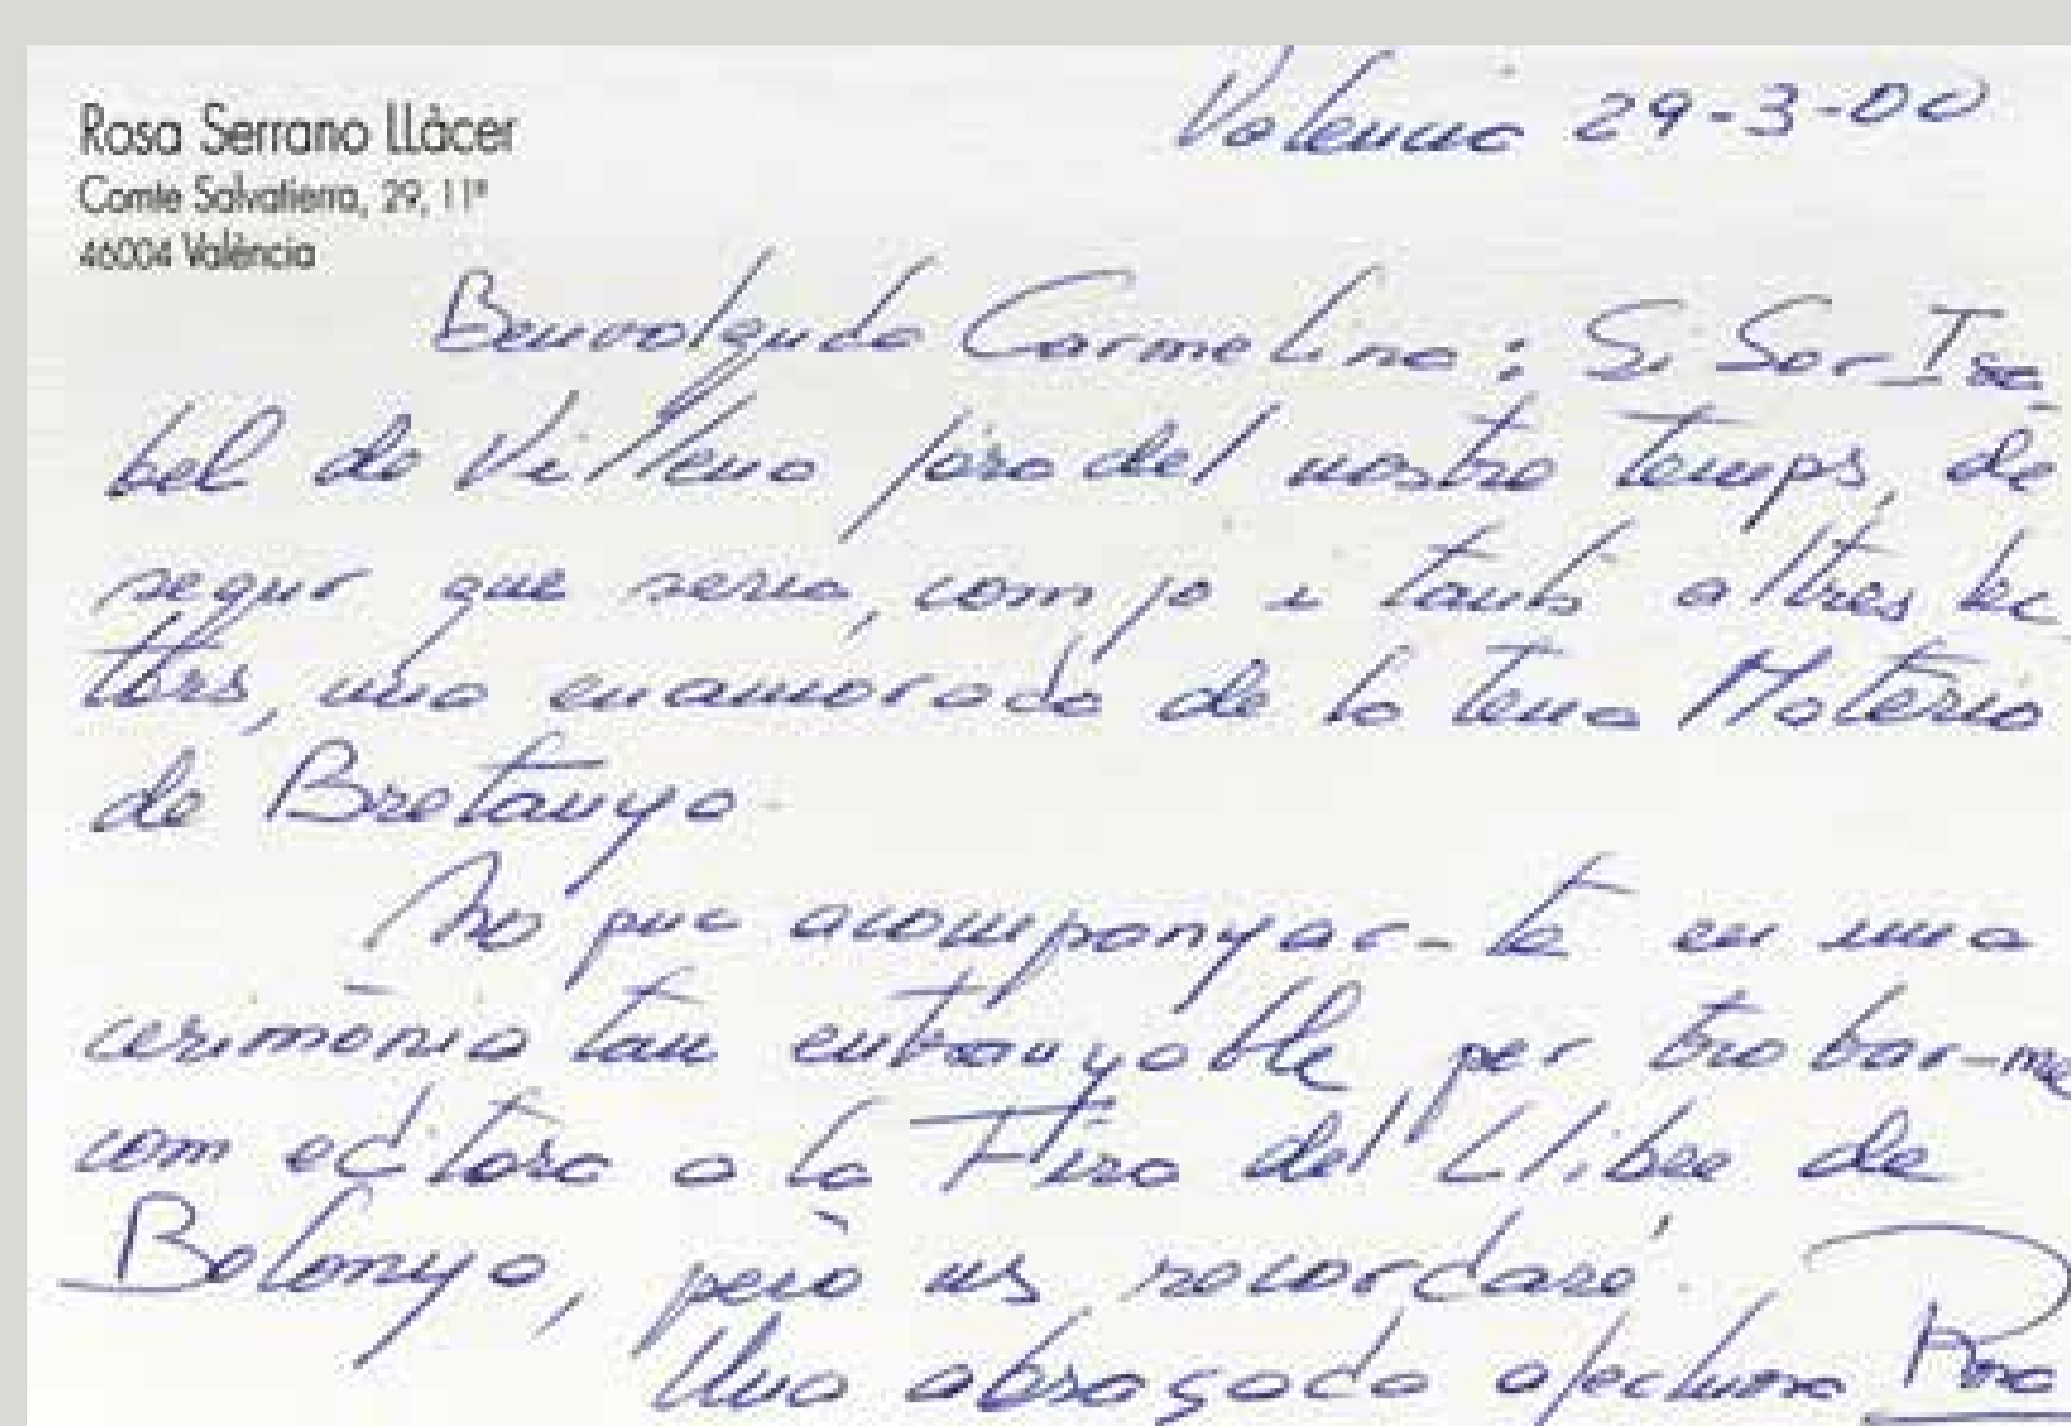 Rosa Serrano LLàcer
Comte Salvatierra, 29, 11ª
46004 València
València 29-3-00
Benvolguda Carmelina: Si Sor Isa-
bel de Villena fora del nostre temps, de
segur que seria, com jo i tants altres lec
tors, una enamorada de la teua Matèria
de Bretanya.
No puc acompanyar-te en una
cerimònia tan entranyable per trobar-me
com editora a la Fira del Llibre de
Bolonya, però us recordaré.
Una abraçada afectuosa Rosa